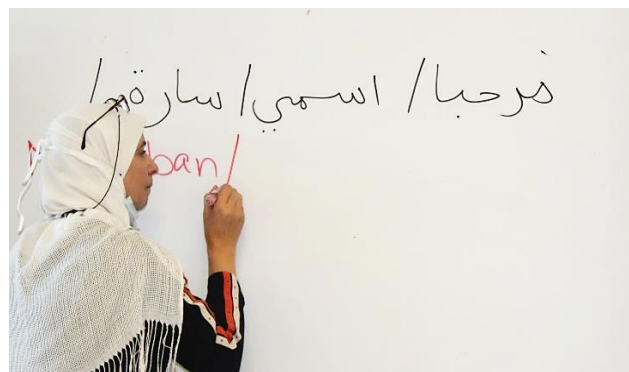 مرحبا / اسمي / سارة /
ban /